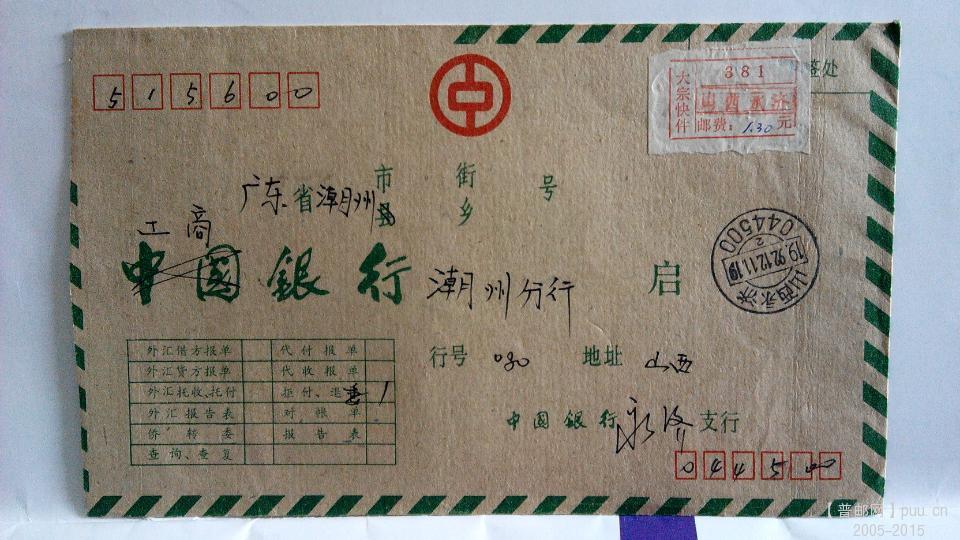 515600
381
大宗快件
山西永济
邮费:1.30元
签处
广东省潮州市县 街乡 号
工商
中国银行 潮州分行 启
山西永济
1992.12.11.19
2
044500
行号 080 地址 山西
中国银行 永济 支行
044500
外汇借方报单 代付报单
外汇贷方报单 代收报单
外汇托收、托付 拒付、退 1
外汇报告表 对帐单
侨转委 报告表
查询、查复
【普邮网】puu.cn
2005-2015